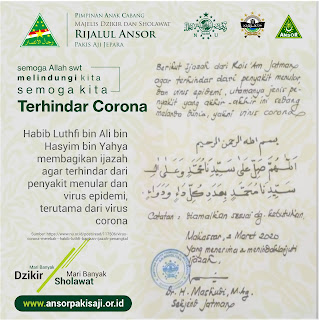 PIMPINAN ANAK CABANG
MAJELIS DZIKIR DAN SHOLAWAT
RIJALUL ANSOR
PAKIS AJI JEPARA
semoga Allah swt
melindungi kita
semoga kita
Terhindar Corona
Habib Luthfi bin Ali bin
Hasyim bin Yahya
membagikan ijazah
agar terhindar dari
penyakit menular dan
virus epidemi,
terutama dari virus
corona
Mari Banyak
Dzikir
Mari Banyak
Sholawat
www.ansorpakisaji.or.id
Berikut Ijazah dari Rais Am Jatman
agar terhindar dari penyakit menular
dan virus epidemi, utamanya jenis pe-
nyakit yang akhir-akhir ini sedang
melanda dunia, yakni virus corona
بسم الله الرحمن الرحيم
اللهم صل على سيدنا محمد وعلى ال
سيدنا محمد بعدد كل داء ودواء
Catatan : Diamalkan sesuai dg kebutuhan.
Makassar, 2 Maret 2020
Yang menerima &
Dr. H. Mashudi, M.Ag.
NU
Ansor